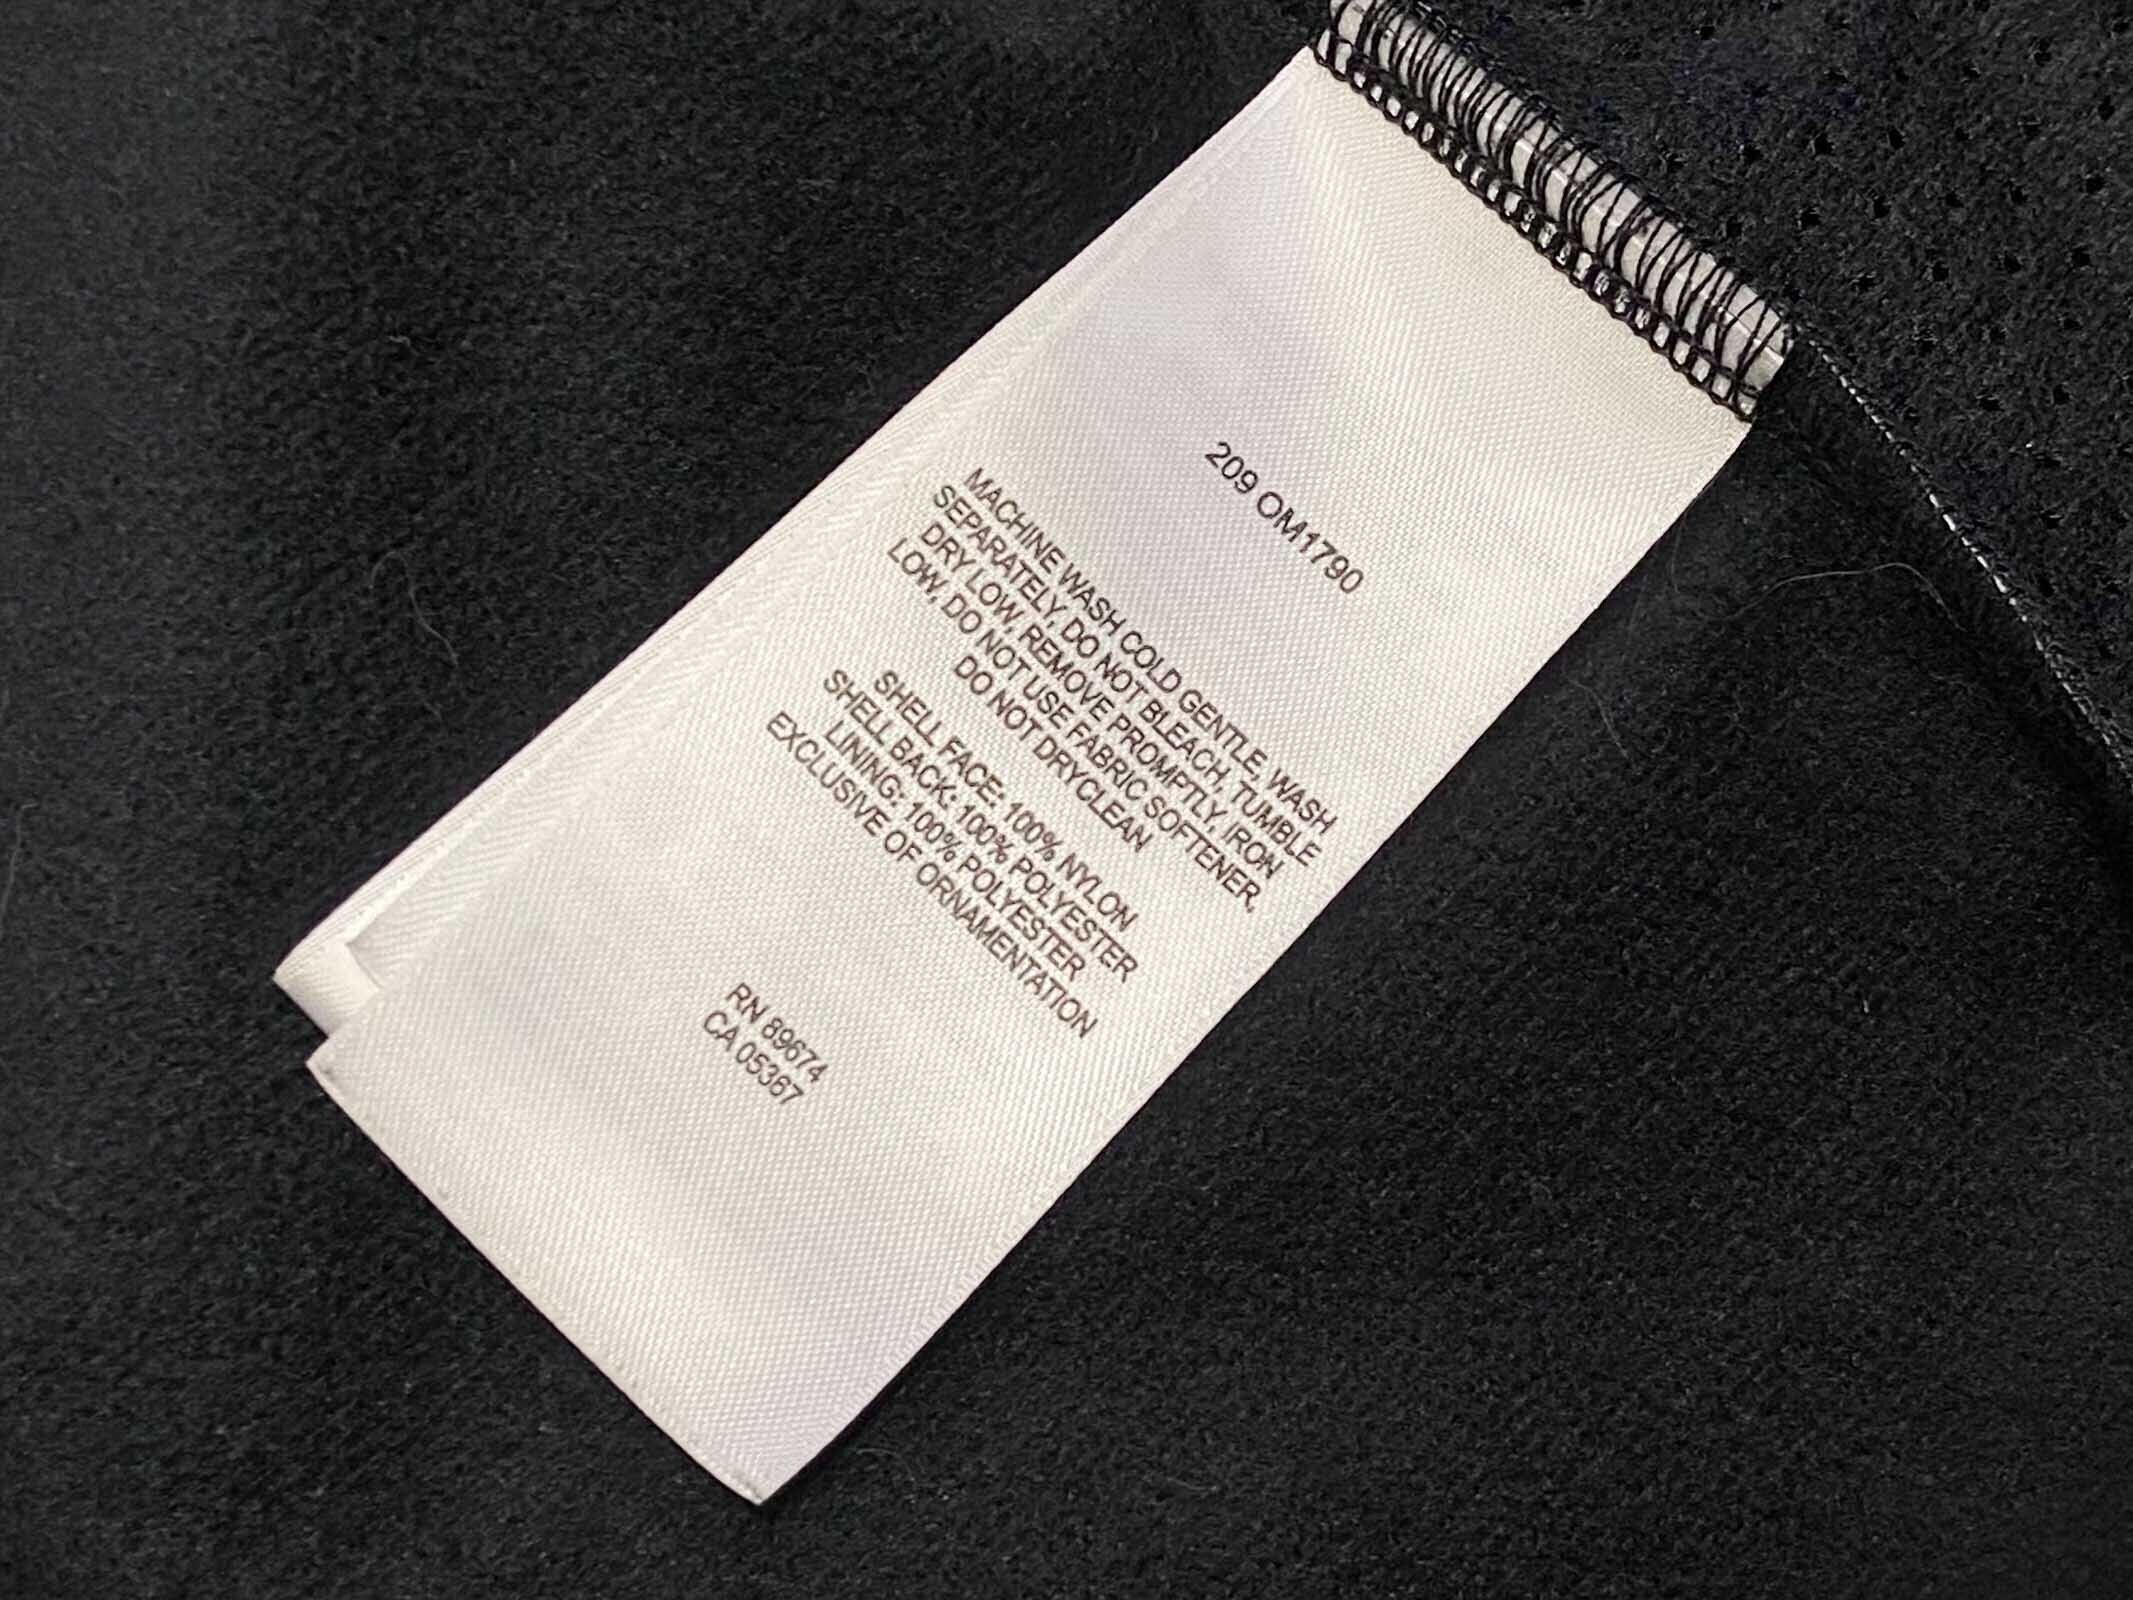 209 OM1790
MACHINE WASH COLD GENTLE, WASH
SEPARATELY, DO NOT BLEACH, TUMBLE
DRY LOW, REMOVE PROMPTLY, IRON
LOW, DO NOT USE FABRIC SOFTENER,
DO NOT DRYCLEAN
SHELL FACE: 100% NYLON
SHELL BACK: 100% POLYESTER
LINING: 100% POLYESTER
EXCLUSIVE OF ORNAMENTATION
RN 89674
CA 05367